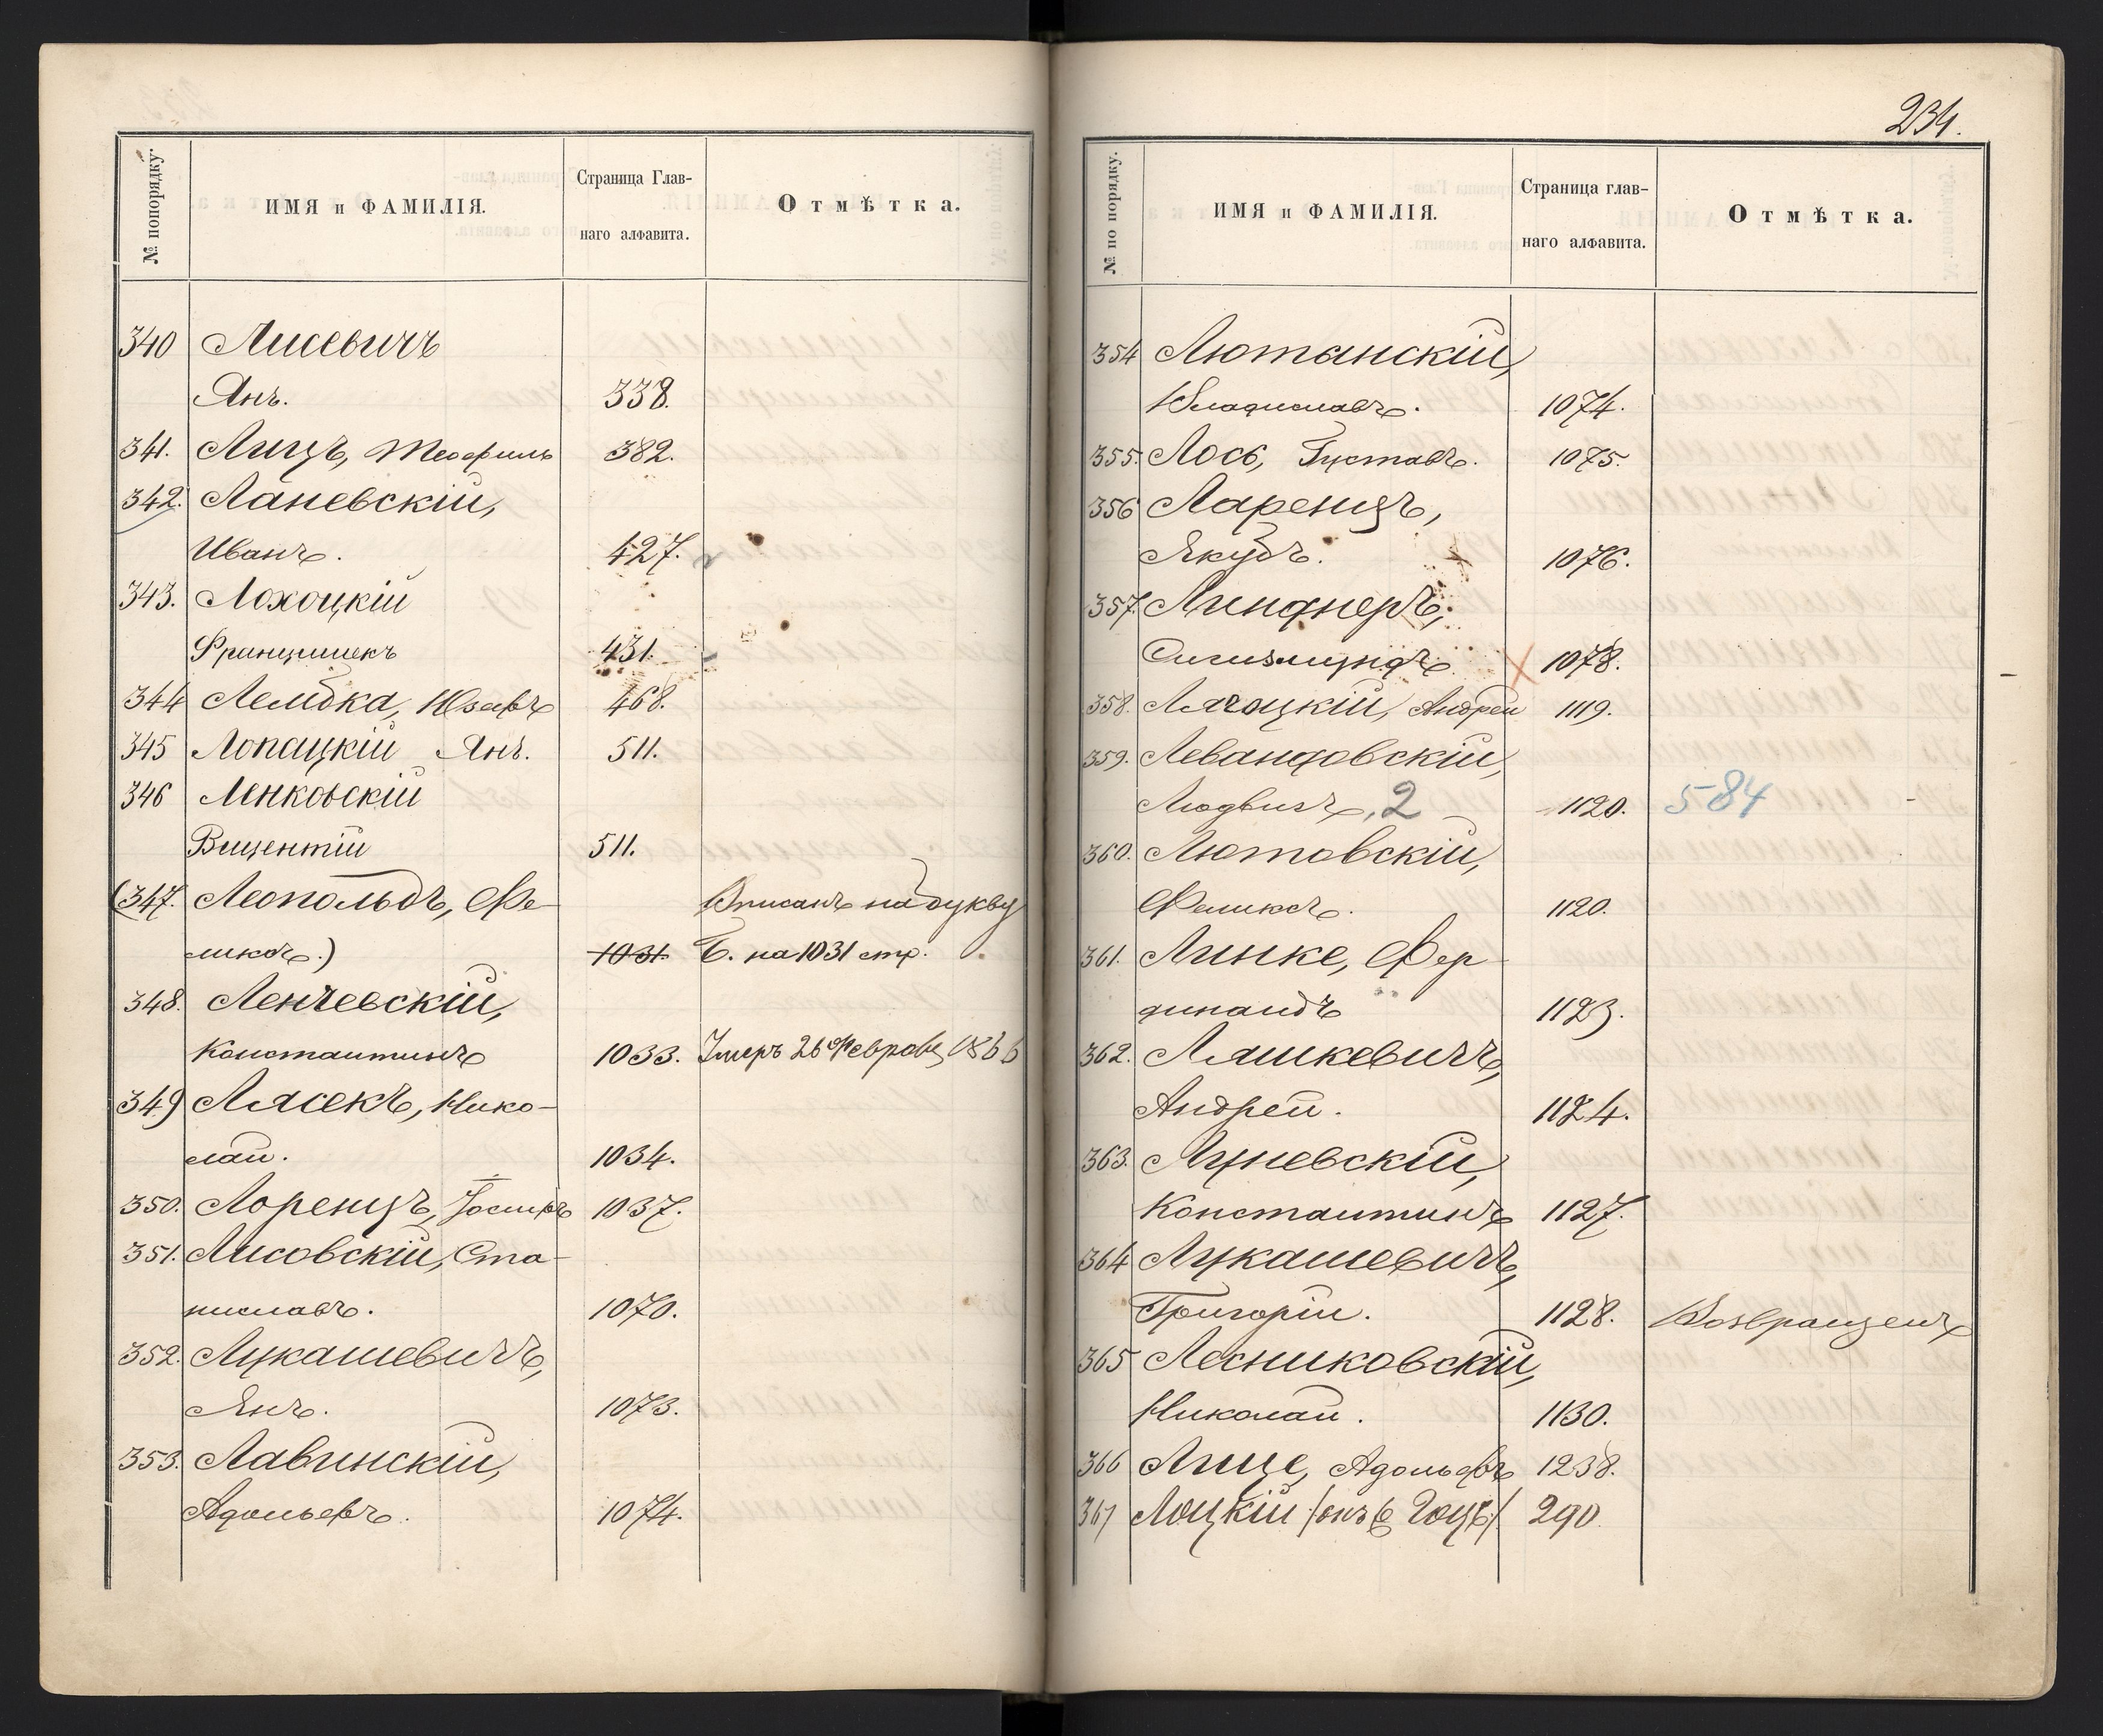 № попорядку.
ИМЯ и ФАМИЛІЯ.
Страница Глав-
наго алфавита.
Отмѣтка.
340 Лисевичъ
Янъ. 338.
341. Лицъ, Теофиль 382.
342. Ланевскій,
Иванъ. 427.
343. Лохоцкій
Францишекъ 431.
344 Лембка, Юзефъ 468.
345 Лопацкій Янъ. 511.
346 Ленковскій
Вицентій 511.
(347. Леопольдъ, Фе- Вписанъ на букву
ликсъ.) 1031. Б. на 1031 стр.
348. Ленчевскій,
Константинъ 1033. Умеръ 26 Февраля 1866
349 Лясекъ, Нико-
лай. 1034.
350. Лоренцъ, Іосифъ 1037.
351. Лисовскій, Ста-
ниславъ. 1070.
352. Лукашевичъ,
Янъ. 1073.
353. Лавинскій,
Адольфъ. 1074.
234.
№ по порядку.
ИМЯ и ФАМИЛІЯ.
Страница глав-
наго алфавита.
Отмѣтка.
354 Лютанскій,
Владиславъ. 1074.
355. Лось, Густавъ. 1075.
356 Ларенцъ,
Якубъ. 1076.
357. Линднеръ,
Сигизмундъ 1078.
358. Лячоцкій, Андрей 1119.
359. Левандовскій,
Людвигъ, 2 1120. 584
360. Лютовскій,
Феликсъ. 1120.
361. Линке, Фер-
динандъ 1123.
362. Ляшкевичъ,
Андрей. 1124.
363. Луневскій,
Константинъ 1127.
364 Лукашевичъ,
Григорій. 1128. Возвращенъ
365 Лесниковскій,
Николай. 1130.
366 Лице, Адольфъ 1238.
367 Лоцкій 290.